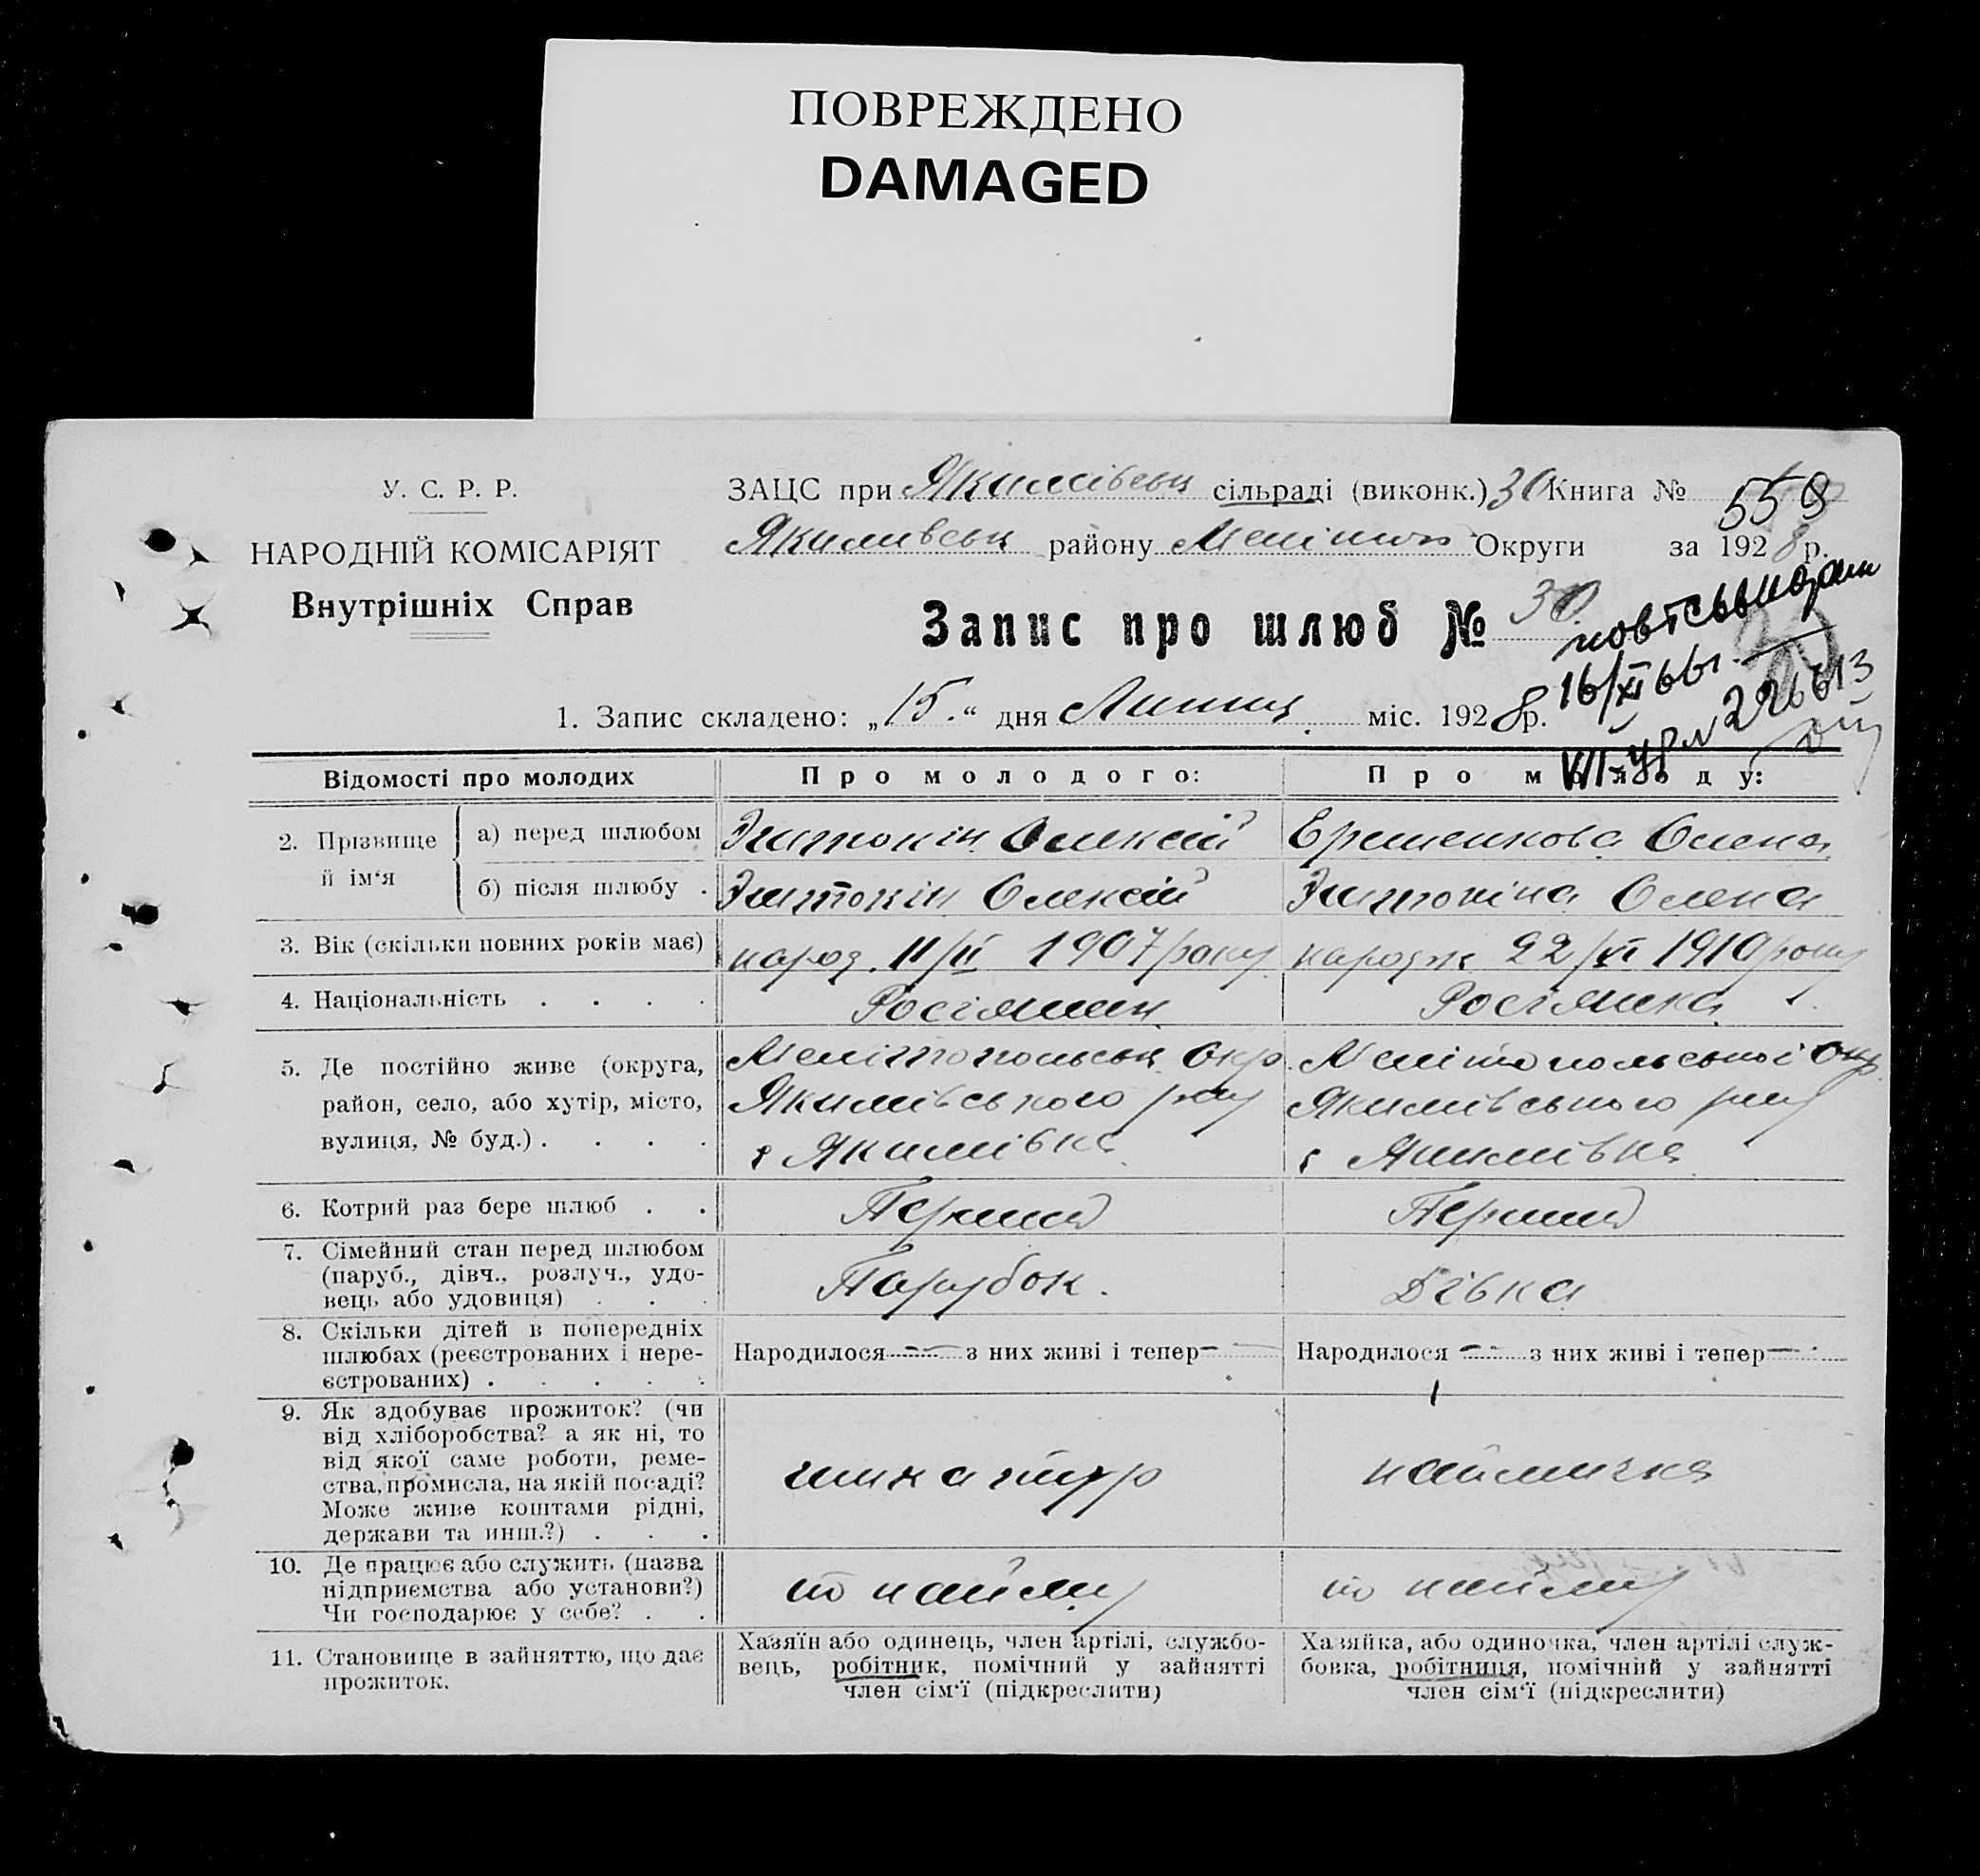 ПОВРЕЖДЕНО
DAMAGED
У. С. Р. Р.
НАРОДНІЙ КОМІСАРІЯТ
Внутрішніх Справ
ЗАЦС при Якимівськ сільраді (виконк.) 30 Книга № 559
Якимівськ району Меліт Округи за 1928 р.
Запис про шлюб № 30
повт свид
16/XI 66 г.
1. Запис складено: „15.“ дня Липня міс. 1928 р.
Відомості про молодих
Про молодого:
Про молоду:
2. Прізвище й ім‘я
а) перед шлюбом
Олексій
Олена
б) після шлюбу .
Олексій
Олена
3. Вік (скільки повних років має)
народ. 11/II 1907 року
народж 22/VI 1910 року
4. Національність . . . .
Росіянин
Росіянка
5. Де постійно живе (округа,
район, село, або хутір, місто,
вулиця, № буд.) . . . .
Мелітопольськ Окр.
Якимівського р-ну
с Якимівка
Мелітопольської Окр
Якимівського р-ну
с Якимівка
6. Котрий раз бере шлюб . .
Перший
Перший
7. Сімейний стан перед шлюбом
(паруб., дівч., розлуч., удо-
вець або удовиця) . . .
Парубок.
Дівка
8. Скільки дітей в попередніх
шлюбах (реєстрованих і нере-
єстрованих) . . . . .
Народилося — — з них живі і тепер —
Народилося — - з них живі і тепер —
9. Як здобуває прожиток? (чи
від хліборобства? а як ні, то
від якої саме роботи, реме-
ства, промисла, на якій посаді?
Може живе коштами рідні,
держави та инш.?) . . .
штукатур
наймичка
10. Де працює або служить (назва
підприємства або установи?)
Чи господарює у себе? . .
по найму
по найму
11. Становище в зайняттю, що дає
прожиток.
Хазяїн або одинець, член артілі, службо-
вець, робітник, помічний у зайнятті
член сім‘ї (підкреслити)
Хазяйка, або одиночка, член артілі служ-
бовка, робітниця, помічний у зайнятті
член сім‘ї (підкреслити)